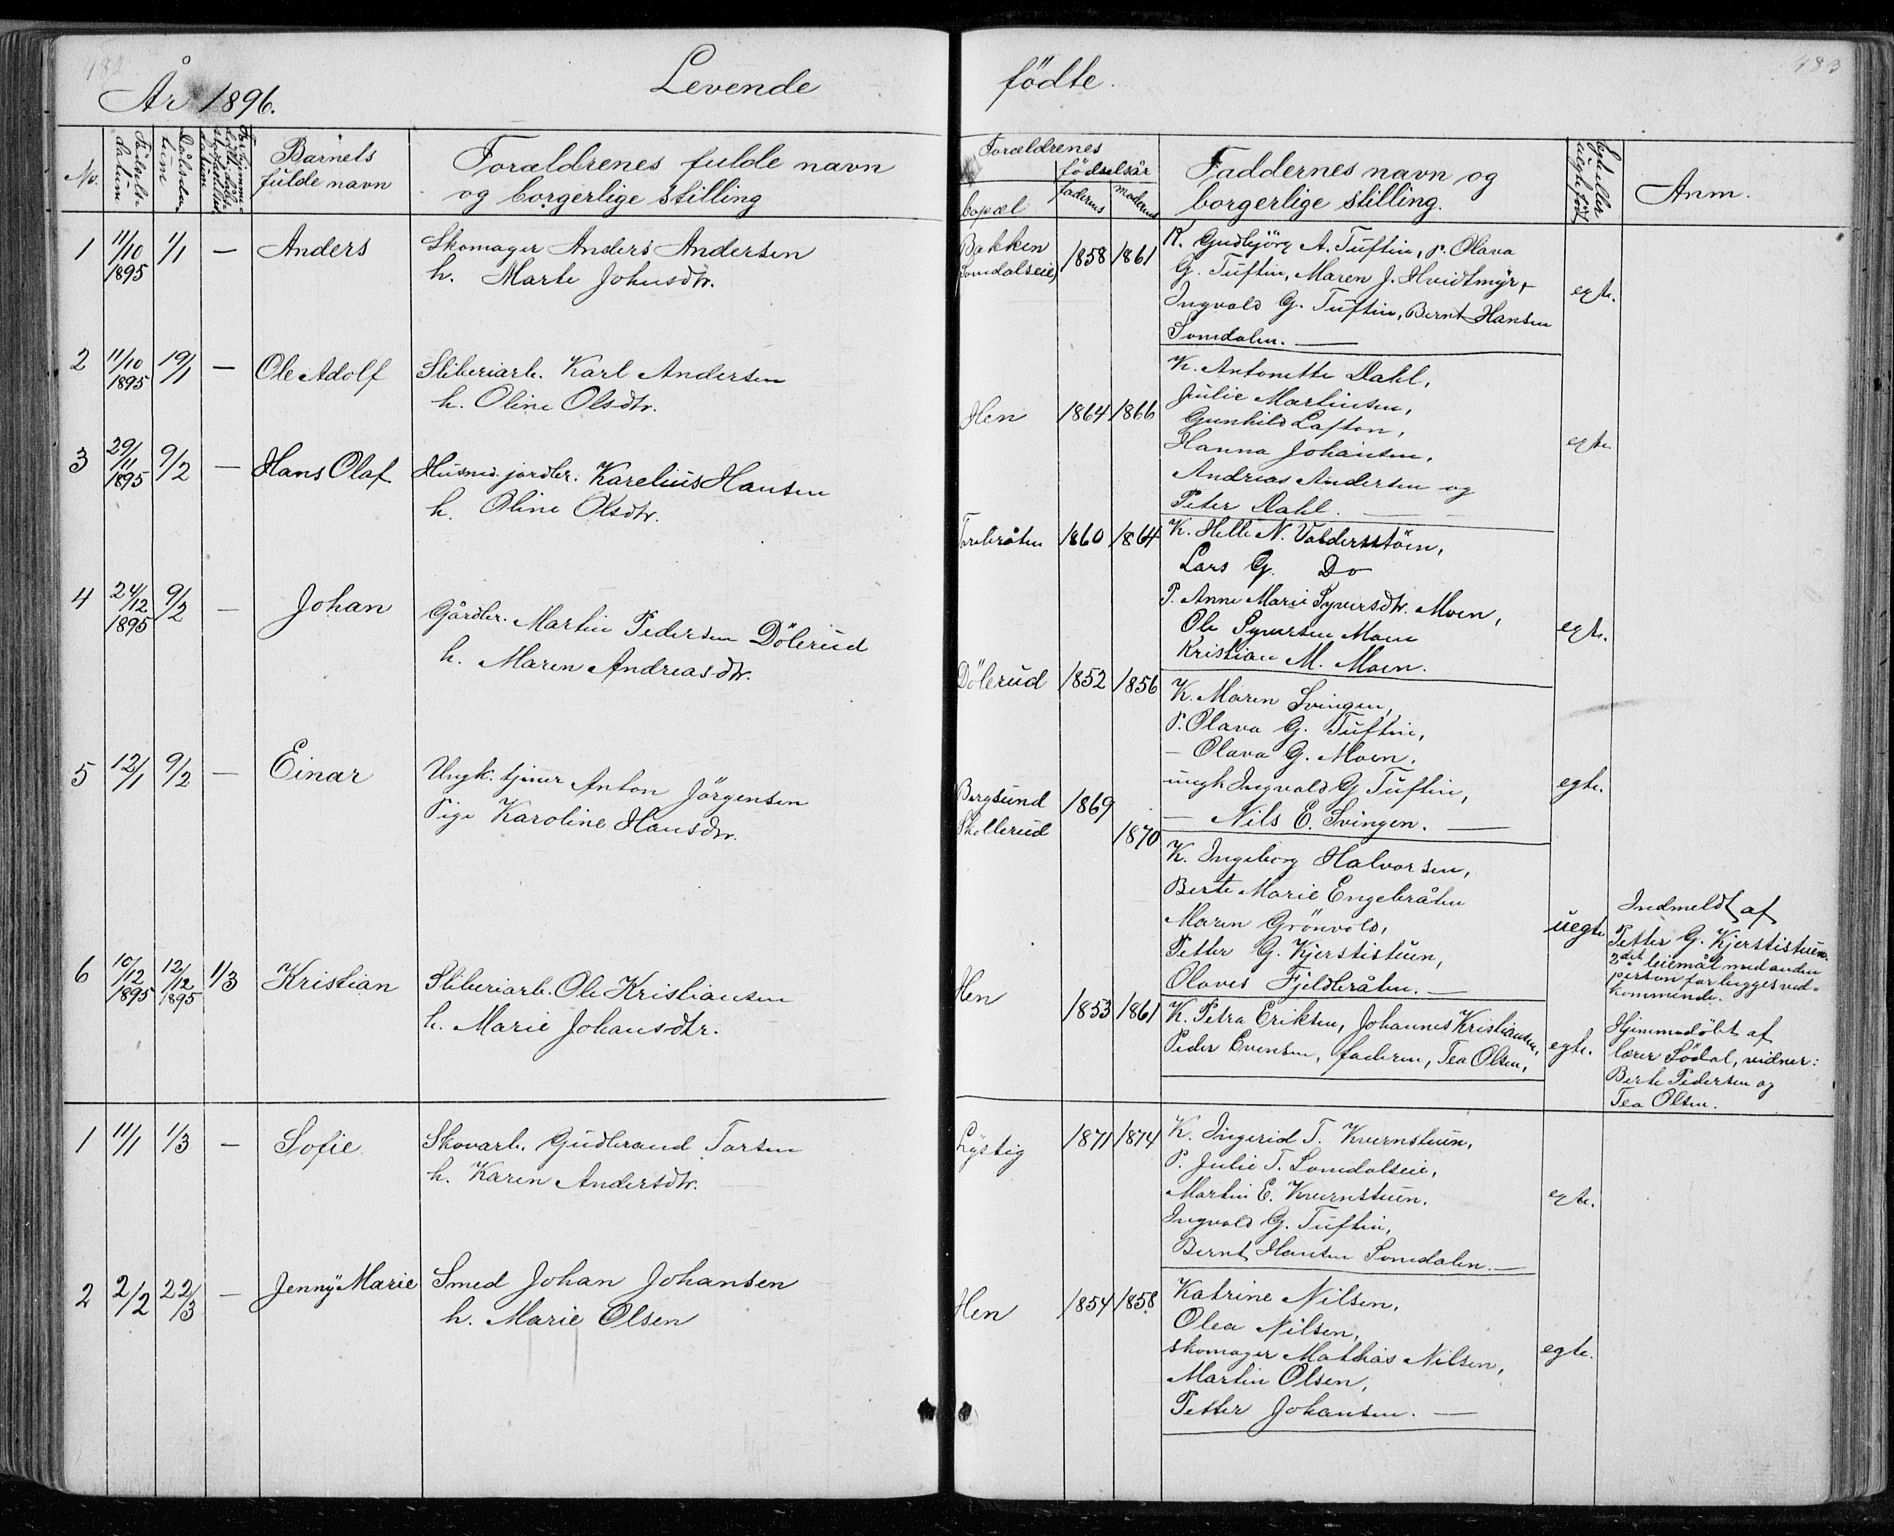 482
År 1896.
Levende
No.
Fødsels-
datum
Dåbsda-
tum
Barnets
fulde navn
Forældrenes fulde navn
og borgerlige stilling
1 11/10 1895 1/1 — Anders Skomager Anders Andersen
h. Marte Johnsdtr.
2 11/10 1895 19/1 — Ole Adolf Sliberiarb. Karl Andersen
h. Oline Olsdtr.
3 29/11 1895 9/2 — Hans Olaf Husmd. jordbr. Karelius Hansen
h. Oline Olsdtr.
4 24/12 1895 9/2 — Johan Gårdbr. Martin Pedersen Dölerud
h. Maren Andreasdtr.
5 12/1 9/2 — Einar Ungk. tjener Anton Jörgensen
Pige Karoline Hansdtr.
6 10/12 1895 12/12 1895 1/3 Kristian Sliberiarb. Ole Kristiansen
h. Marie Johansdtr.
1 11/1 1/3 — Sofie Skovarb. Gudbrand Torsen
h. Karen Andersdtr.
2 2/2 22/3 — Jenny Marie Smed Johan Johansen
h. Marie Olsen
483
födte.
Forældrenes
födselsår
bopæl faderens moderens
Faddernes navn og
borgerlige stilling.
Egte eller
uegte född
Anm.
Bakken
Somdalseie, 1858 1861
K. Gudbjörg A. Tuftin, P. Olava
G. Tuftin, Maren J. Hvidtmyr,
Ingvald G. Tuftin, Bernt Hansen
Somdalen. —
egte.
Hen 1864 1866
K. Antonette Dahl,
Julie Martinsen,
Gunhild Lafton,
Hanna Johansen,
Andreas Andersen og
Peter Dahl. —
egte.
Torebråten 1860 1864
K. Helle N. Valdersstöen,
Lars G. Do
P. Anne Marie Syversdtr. Moen,
Ole Syversen Moen
Kristian M. Moen.
egte.
Dölerud 1852 1856
K. Maren Svingen,
P. Olava G. Tuftin,
— Olava G. Moen,
ungk Ingvald G Tuftin,
— Nils E. Svingen. —
egte.
Bergsund 1869
Skollerud 1870
K. Ingeborg Halvorsen,
Berte Marie Engebråten
Maren Grönvold,
Petter G. Kjerstistuen,
Olaves Fjeldbråten. —
uegte
Indmeldt af
Petter G. Kjerstistuen.
2det leiemål med anden
person forlugges ved-
kommende.
Hen 1853 1861
K. Petra Eriksen, Johannes Kristiansen,
Peder Evensen, faderen, Tea Olsen,
egte.
Hjemmedöbt af
lærer Södal, vidner:
Berte Pedersen og
Tea Olsen.
Lystig 1871 1874
K. Ingerid T. Kvernstuen,
P. Julie T. Somdalseie,
Martin E. Kvernstuen.
Ingvald G. Tuftin,
Bernt Hansen Somdalen. —
egte.
Hen 1854 1858
Katrine Nilsen,
Olea Nilsen,
skomager Mathias Nilsen,
Martin Olsen,
Petter Johansen. —
egte.